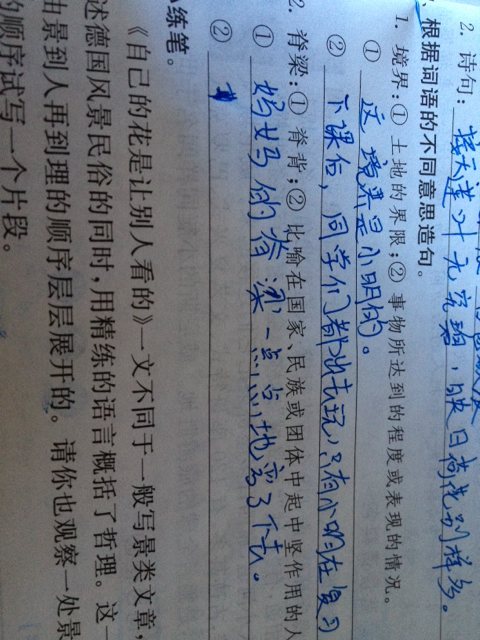 2. 诗句：接天莲叶无穷碧，映日荷花别样红。
、根据词语的不同意思造句。
1. 境界：① 土地的界限；② 事物所达到的程度或表现的情况。
① 这境界是小明的。
② 下课后，同学们都出去玩，只有小明在复习
2. 脊梁：① 脊背；② 比喻在国家、民族或团体中起中坚作用的人
① 妈妈的脊梁一点点地弯了下去。
②
小练笔。
《自己的花是让别人看的》一文不同于一般写景类文章，
述德国风景民俗的同时，用精练的语言概括了哲理。这一
由景到人再到理的顺序层层展开的。请你也观察一处景
的顺序试写一个片段。